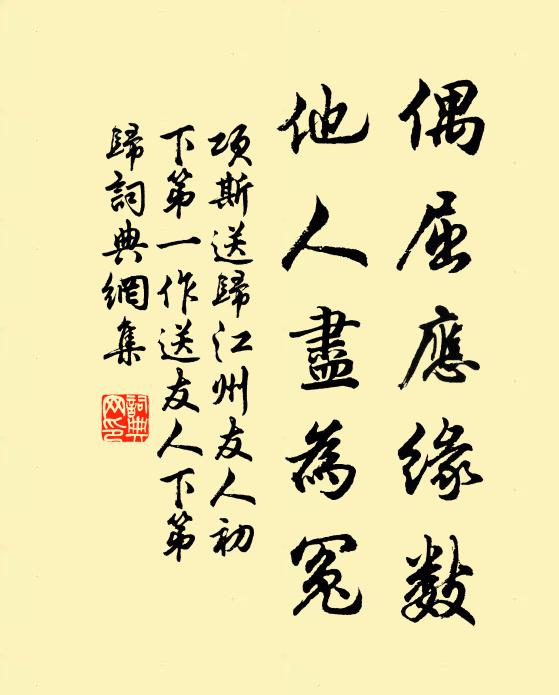 偶屈應緣數
他人盡為冤
項斯送歸江州友人初
下第一作送友人下第
歸詞典網集
詞典網印